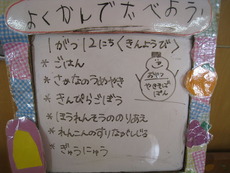 よくかんでたべよう!
1がつ12にち(きんようび)
* ごはん
* さかなのうめやき
* きんぴらごぼう
* ほうれんそうののりあえ
* れんこんのすりながしじる
* ぎゅうにゅう
おやつ
やきそば
ぱん